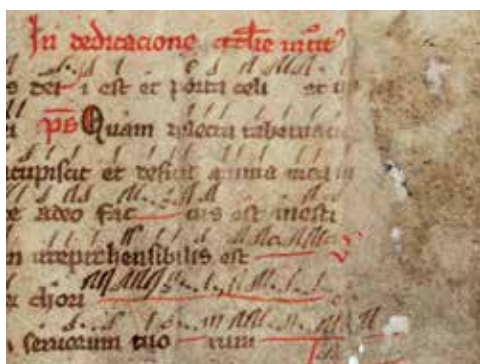 In dedicacione
dei est et porta celi et
p̄s Quam dilecta tabernacu
cupiscit et deficit anima mea in
a deo fac tus est inesti
irreprehensibilis est
chori
seruorum tuo rum